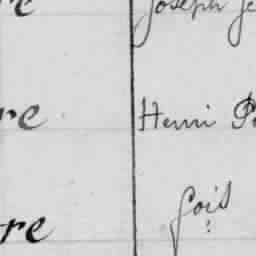 re Joseph Je
re Henri Pa
re fois